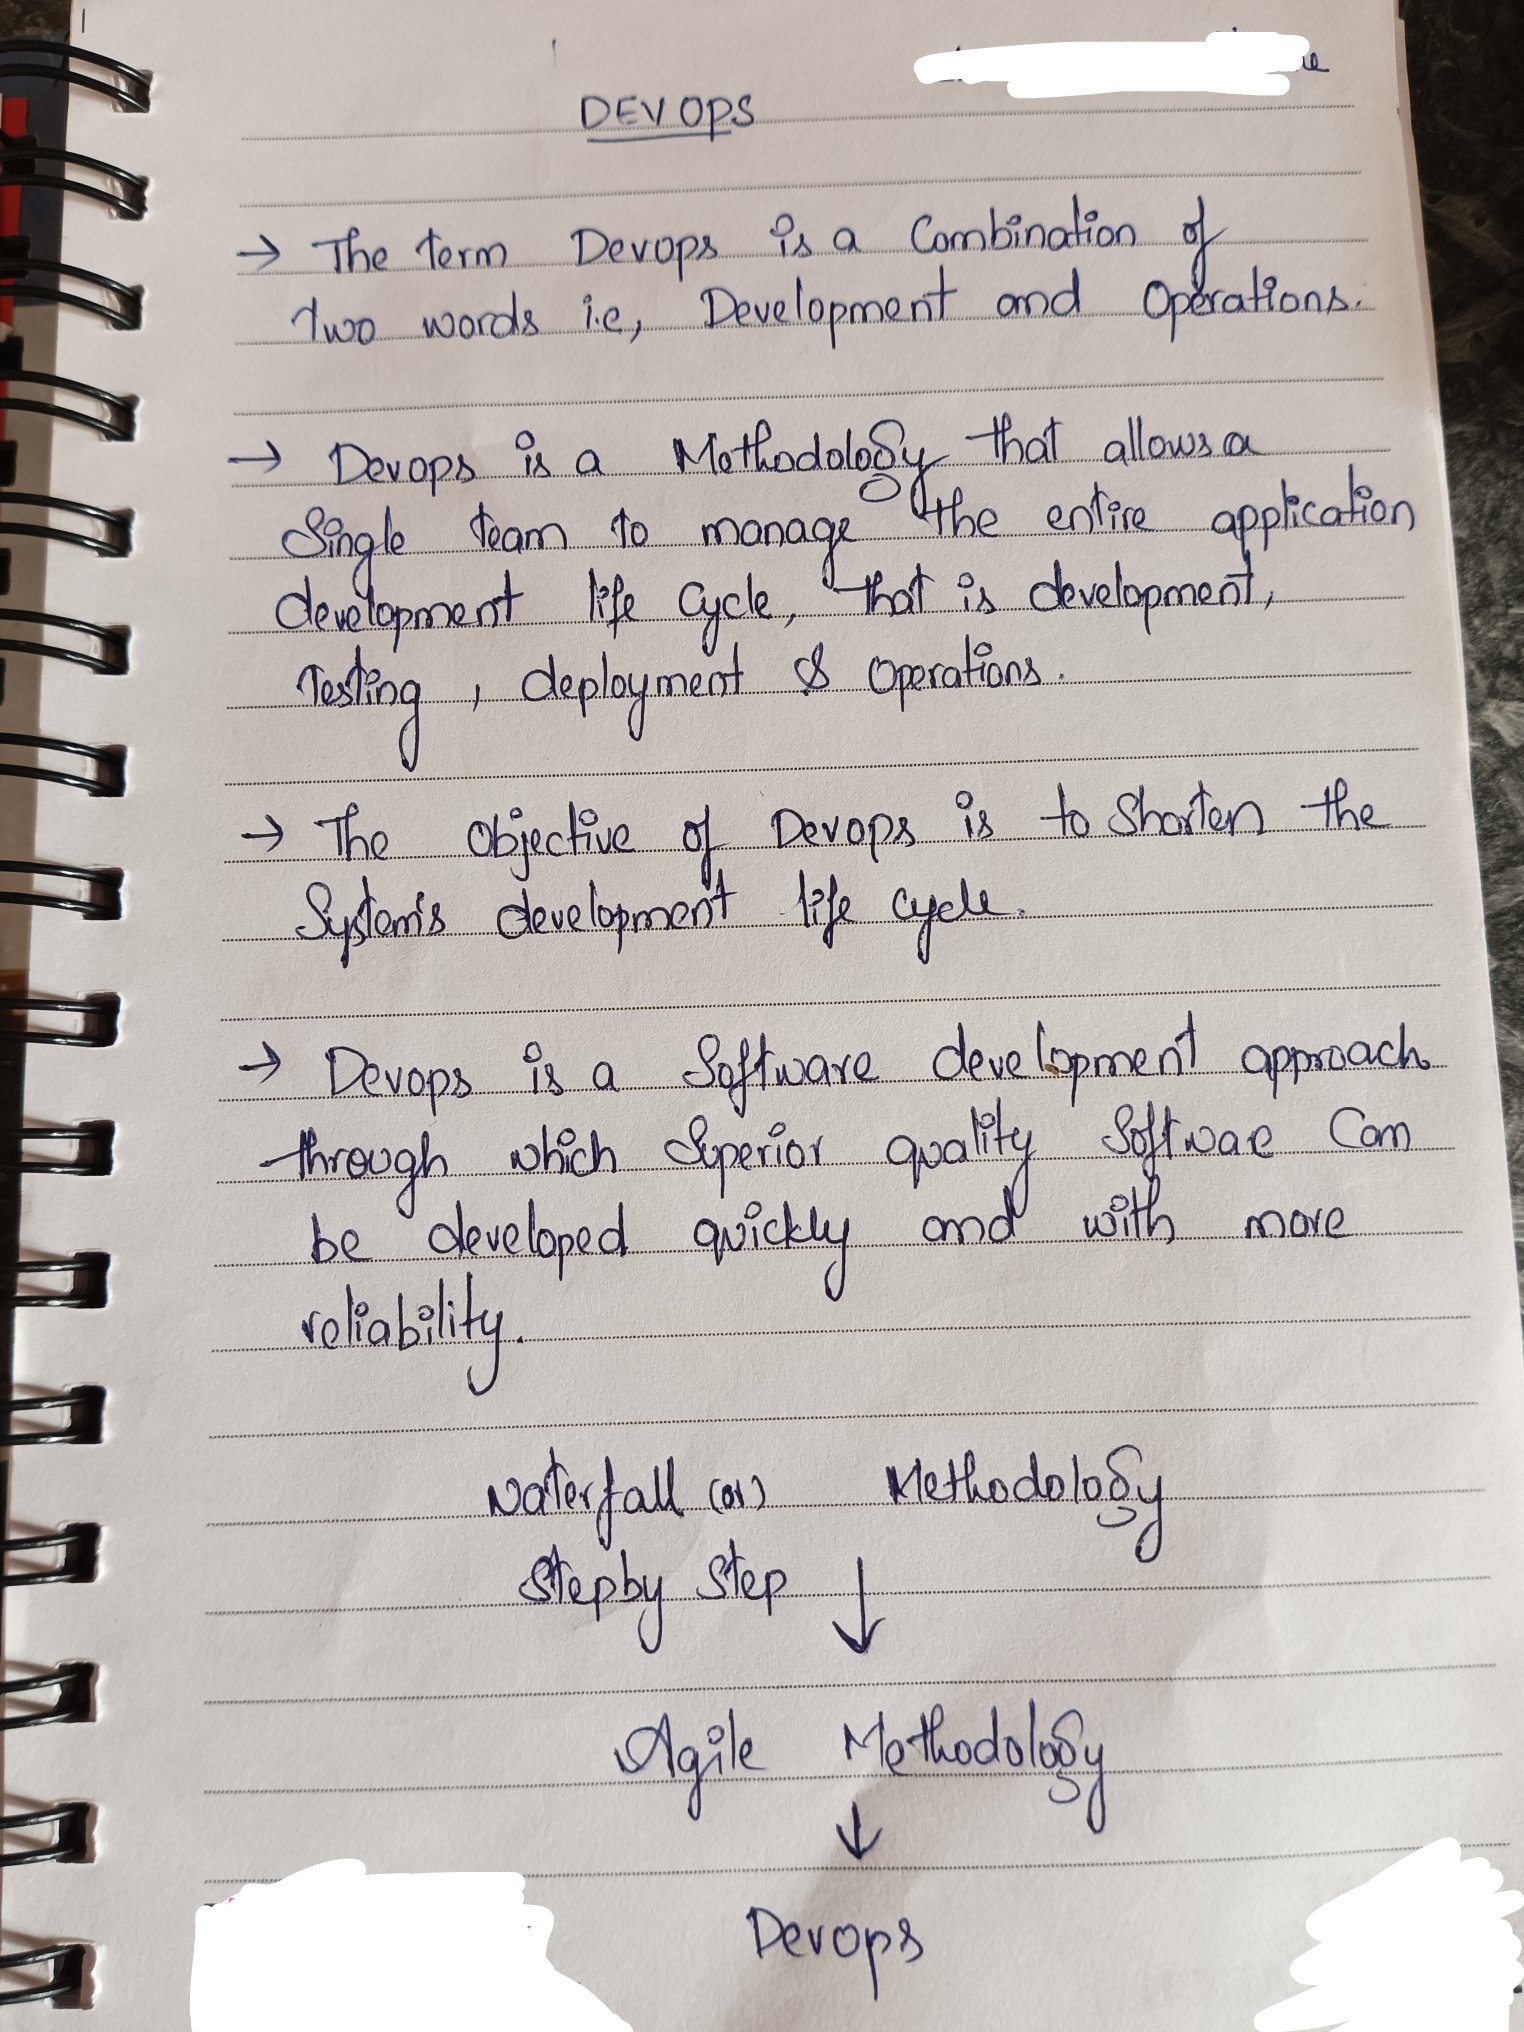 DEVOPS
→ The term Devops is a Combination of
two words i.e, Development and Operations.
→ Devops is a Methodology that allows a
Single team to manage the entire application
development life Cycle, that is development,
Testing, deployment & Operations.
→ The Objective of Devops is to Shorten the
System's development life cycle.
→ Devops is a Software development approach
through which Superior quality Software Can
be developed quickly and with more
reliability.
Waterfall (or) Methodology
Step by Step ↓
Agile Methodology
↓
Devops